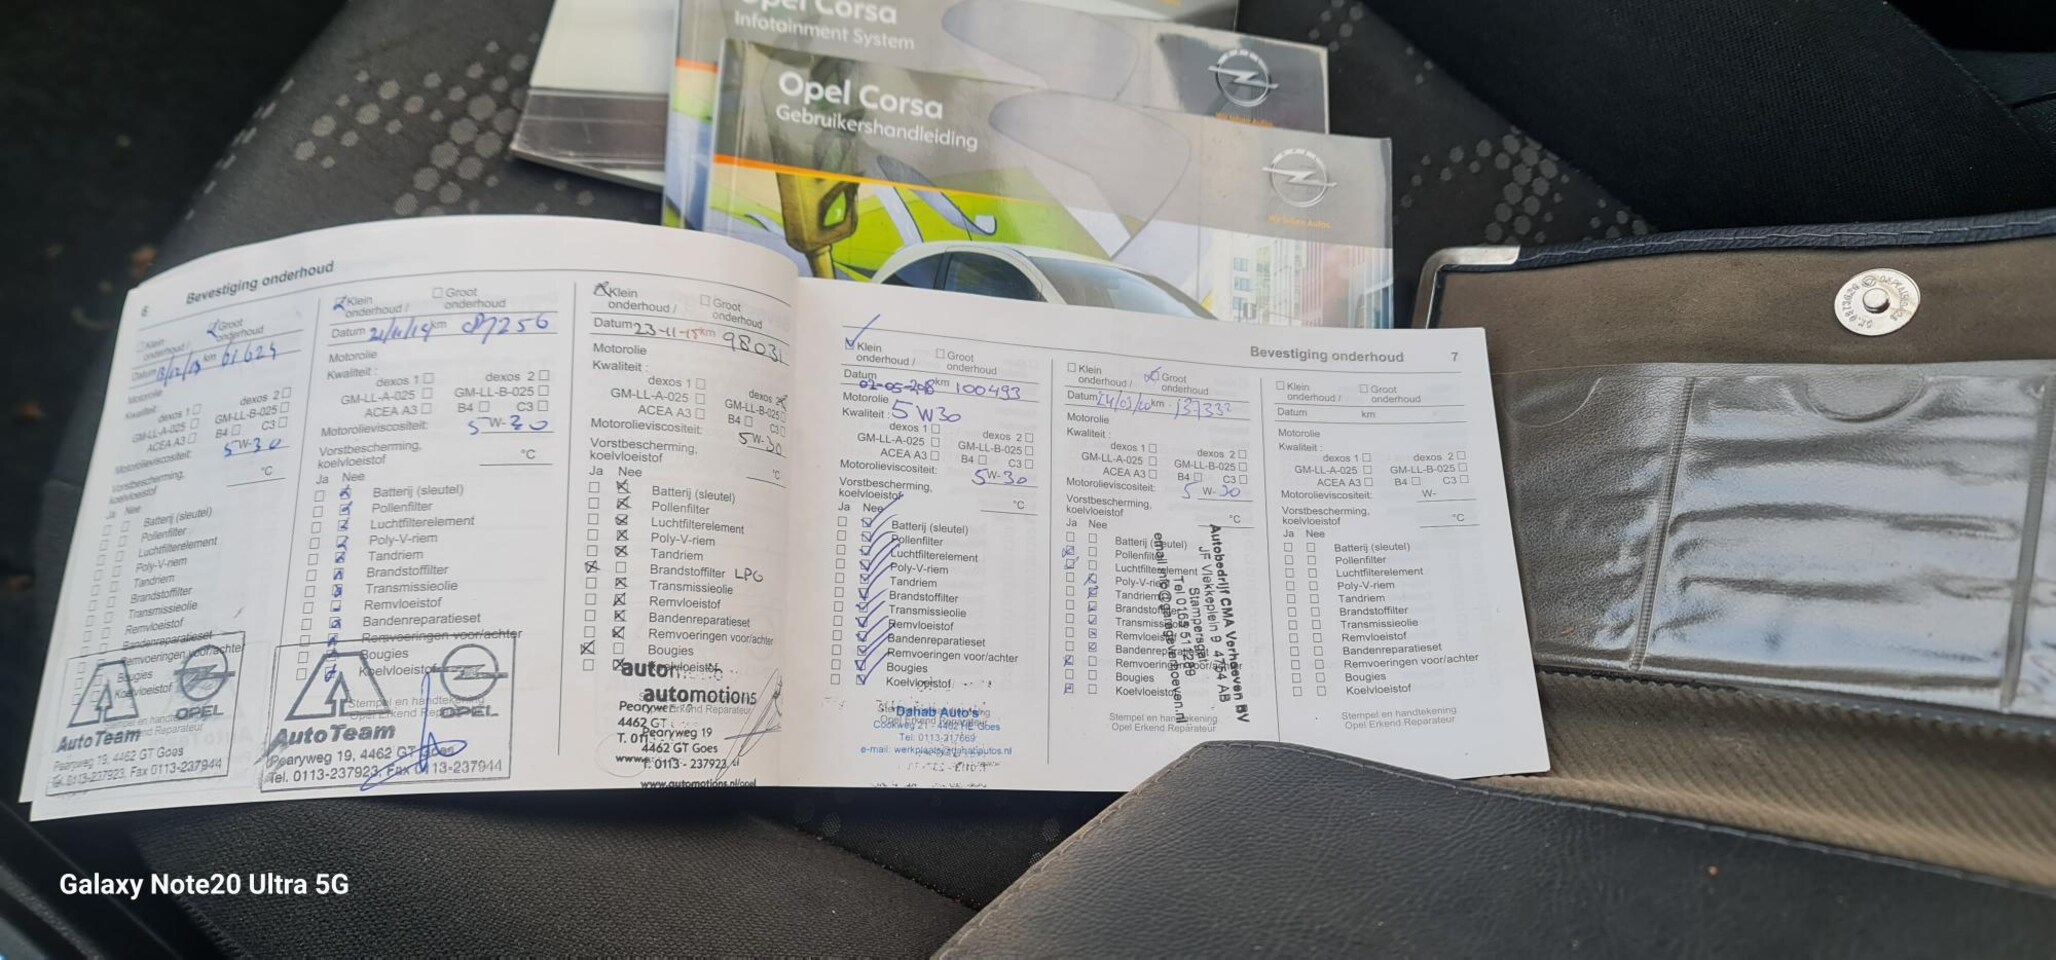 Opel Corsa
Infotainment System
Opel Corsa
Gebruikershandleiding
Wir leben Autos
6 Bevestiging onderhoud
Klein onderhoud / Groot onderhoud
Datum km 61624
Motorolie
Kwaliteit
dexos 1 dexos 2
GM-LL-A-025 GM-LL-B-025
ACEA A3 B4 C3
Motorolieviscositeit: 5W-30
Vorstbescherming,
koelvloeistof °C
Ja Nee
Batterij (sleutel)
Pollenfilter
Luchtfilterelement
Poly-V-riem
Tandriem
Brandstoffilter
Transmissieolie
Remvloeistof
Bandenreparatieset
Remvoeringen voor/achter
Bougies
Koelvloeistof
Stempel en handtekening
Opel Erkend Reparateur
OPEL
AutoTeam
Pearyweg 19, 4462 GT Goes
Tel. 0113-237923, Fax 0113-237944
Klein Groot
onderhoud / onderhoud
Datum km
Motorolie
Kwaliteit:
dexos 1 dexos 2
GM-LL-A-025 GM-LL-B-025
ACEA A3 B4 C3
Motorolieviscositeit: 5W-30
Vorstbescherming,
koelvloeistof °C
Ja Nee
Batterij (sleutel)
Pollenfilter
Luchtfilterelement
Poly-V-riem
Tandriem
Brandstoffilter
Transmissieolie
Remvloeistof
Bandenreparatieset
Remvoeringen voor/achter
Bougies
Koelvloeistof
Stempel en handtekening
Opel Erkend Reparateur
OPEL
AutoTeam
Pearyweg 19, 4462 GT Goes
Tel. 0113-237923, Fax 0113-237944
Klein Groot
onderhoud / onderhoud
Datum 23-11-15 km 98031
Motorolie
Kwaliteit:
dexos 1 dexos 2
GM-LL-A-025 GM-LL-B-025
ACEA A3 B4 C3
Motorolieviscositeit: 5W-30
Vorstbescherming,
koelvloeistof °C
Ja Nee
Batterij (sleutel)
Pollenfilter
Luchtfilterelement
Poly-V-riem
Tandriem
Brandstoffilter LPG
Transmissieolie
Remvloeistof
Bandenreparatieset
Remvoeringen voor/achter
Bougies
Koelvloeistof
automotions
Pearyweg 19
4462 GT Goes
T. 0113 - 237923
www.automotions.nl/opel
Bevestiging onderhoud 7
Klein Groot
onderhoud / onderhoud
Datum km 100493
Motorolie
Kwaliteit: 5W30
dexos 1 dexos 2
GM-LL-A-025 GM-LL-B-025
ACEA A3 B4 C3
Motorolieviscositeit: 5W-30
Vorstbescherming,
koelvloeistof °C
Ja Nee
Batterij (sleutel)
Pollenfilter
Luchtfilterelement
Poly-V-riem
Tandriem
Brandstoffilter
Transmissieolie
Remvloeistof
Bandenreparatieset
Remvoeringen voor/achter
Bougies
Koelvloeistof
Dahab Auto's
Tel: 0113-217669
Klein Groot
onderhoud / onderhoud
Datum km 137332
Motorolie
Kwaliteit:
dexos 1 dexos 2
GM-LL-A-025 GM-LL-B-025
ACEA A3 B4 C3
Motorolieviscositeit: 5W-30
Vorstbescherming,
koelvloeistof °C
Ja Nee
Batterij (sleutel)
Pollenfilter
Luchtfilterelement
Poly-V-riem
Tandriem
Remvoeringen voor/achter
Bougies
Koelvloeistof
Autobedrijf CMA Verhoeven BV
JF Vlekkeplein 9 4754 AB
Stampersgat
Stempel en handtekening
Opel Erkend Reparateur
Klein Groot
onderhoud / onderhoud
Datum km
Motorolie
Kwaliteit:
dexos 1 dexos 2
GM-LL-A-025 GM-LL-B-025
ACEA A3 B4 C3
Motorolieviscositeit: W-
Vorstbescherming,
koelvloeistof °C
Ja Nee
Batterij (sleutel)
Pollenfilter
Luchtfilterelement
Poly-V-riem
Tandriem
Brandstoffilter
Transmissieolie
Remvloeistof
Bandenreparatieset
Remvoeringen voor/achter
Bougies
Koelvloeistof
Stempel en handtekening
Opel Erkend Reparateur
Galaxy Note20 Ultra 5G